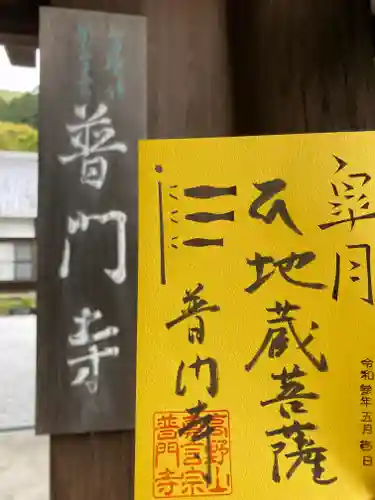 普門寺
皐月
令和参年五月壱日
地蔵菩薩
普門寺
高野山
真言宗
普門寺